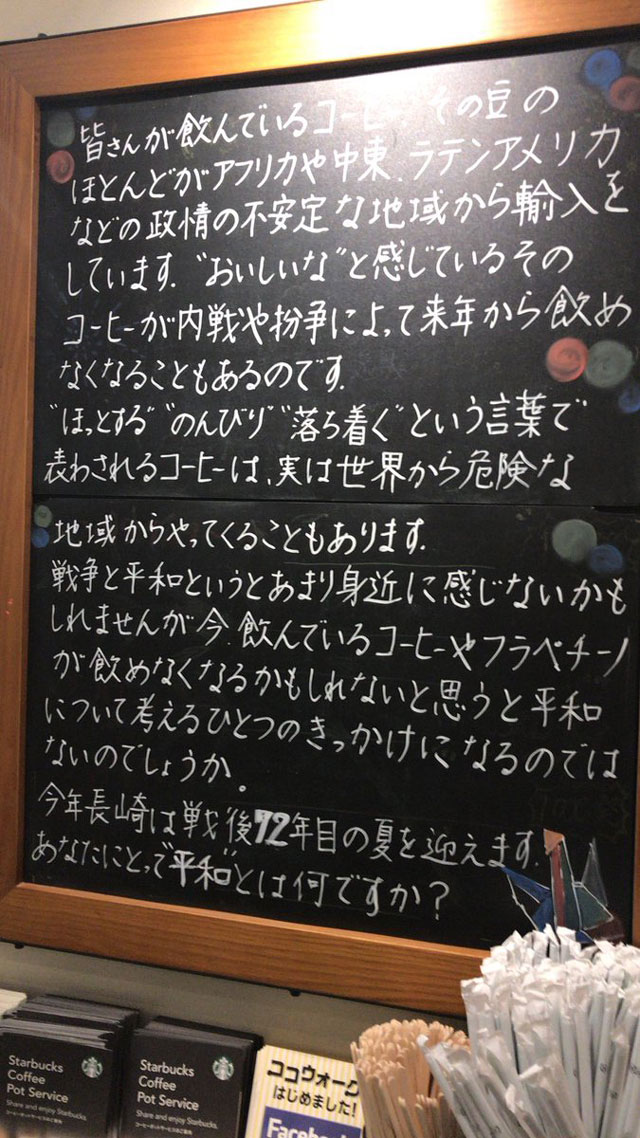 皆さんが飲んでいるコーヒー その豆の
ほとんどがアフリカや中東、ラテンアメリカ
などの政情の不安定な地域から輸入を
しています。"おいしいな"と感じているその
コーヒーが内戦や紛争によって来年から飲め
なくなることもあるのです。
"ほっとする" "のんびり" "落ち着く"という言葉で
表わされるコーヒーは、実は世界から危険な
地域からやってくることもあります。
戦争と平和というとあまり身近に感じないかも
しれませんが今、飲んでいるコーヒーやフラペチーノ
が飲めなくなるかもしれないと思うと平和
について考えるひとつのきっかけになるのでは
ないのでしょうか。
今年長崎は戦後72年目の夏を迎えます。
あなたにとって"平和"とは何ですか？
Starbucks
Coffee
Pot Service
Share and enjoy Starbucks.
コーヒーポットサービスのご案内
Starbucks
Coffee
Pot Service
Share and enjoy Starbucks.
コーヒーポットサービスのご案内
ココウォーク
はじめました!
Facebook